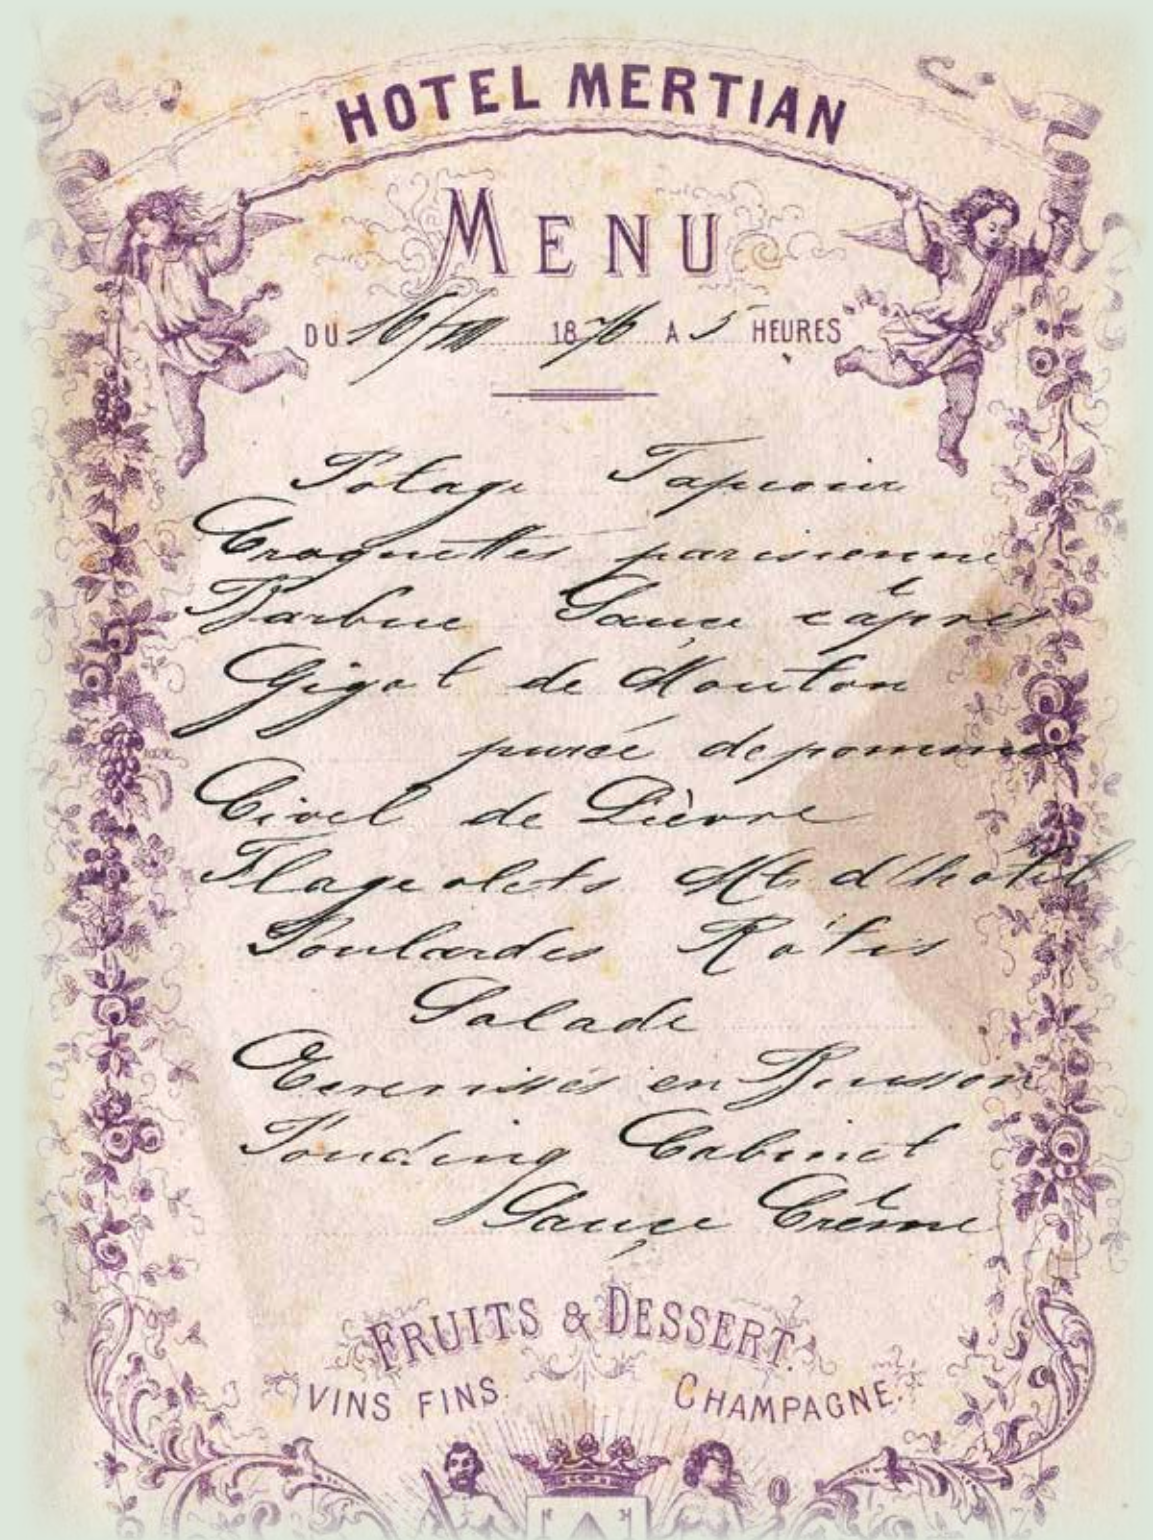 HOTEL MERTIAN
MENU
DU 16/VIII 1876 A 5 HEURES
Potage Tapioca
Croquettes parisienne
Barbue Sauce câpres
Gigot de Mouton
purée de pomme
Civet de Lièvre
Flageolets Mt. d'hotel
Poulardes Rôtis
Salade
Ecrevisses en Buisson
Pouding Cabinet
Sauçe Crême
FRUITS & DESSERT.
VINS FINS. CHAMPAGNE.